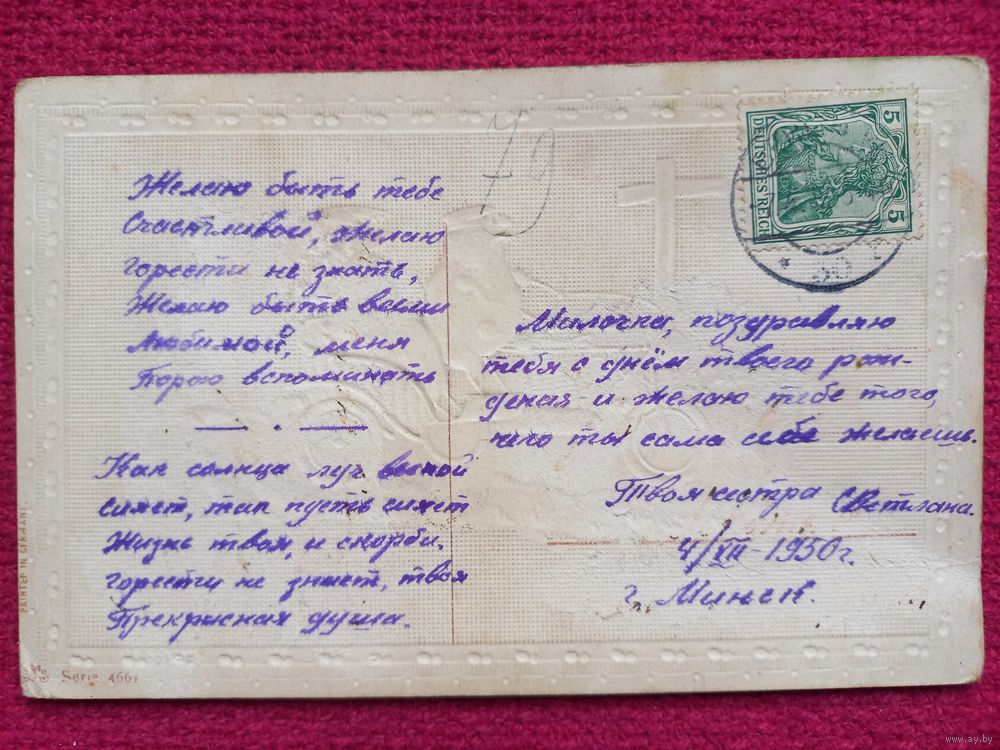 79
5 5
DEUTSCHES REICH
Желаю быть тебе
Счастливой, желаю
горести не знать,
Желаю быть всеми
Любимой, меня
Порою вспоминать
Как солнца луч весной
сияет, так пусть сияет
Жизнь твоя, и скорби.
горести не знает, твоя
Прекрасная душа.
Милочка, поздравляю
тебя с днём твоего рож-
дения и желаю тебе того,
чего ты сама себе желаешь.
Твоя сестра Светлана.
4/VII-1950г.
г. Минск.
PRINTED IN GERMANY
Serie 4661
www.ay.by